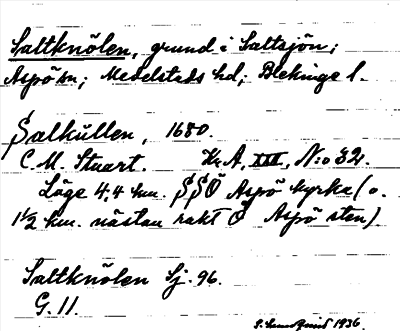 Saltknölen, grund i Saltsjön;
Aspö sn; Medelstads hd; Blekinge l.
Salkullen, 1680.
C. M. Stuart. Kr. A, XIII, N:o 32.
Läge 4,4 km. SSÖ Aspö kyrka (o.
1½ km. nästan rakt Ö Aspö sten)
Saltknölen Sj. 96.
G. 11.
1936